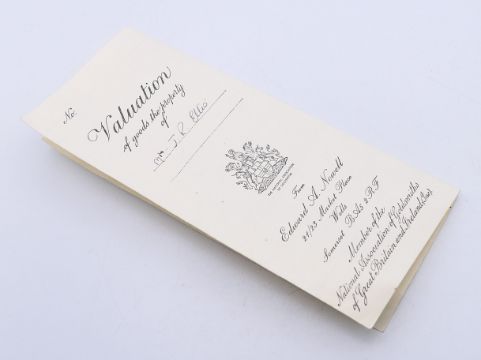 No.
Valuation
of goods the property
of
Mr J. R. Ellis
From
Edward A. Newell
21/23 Market Place
Wells
Somerset BA5 2RF
Member of the
National Association of Goldsmiths
of Great Britain and Ireland (Inc)